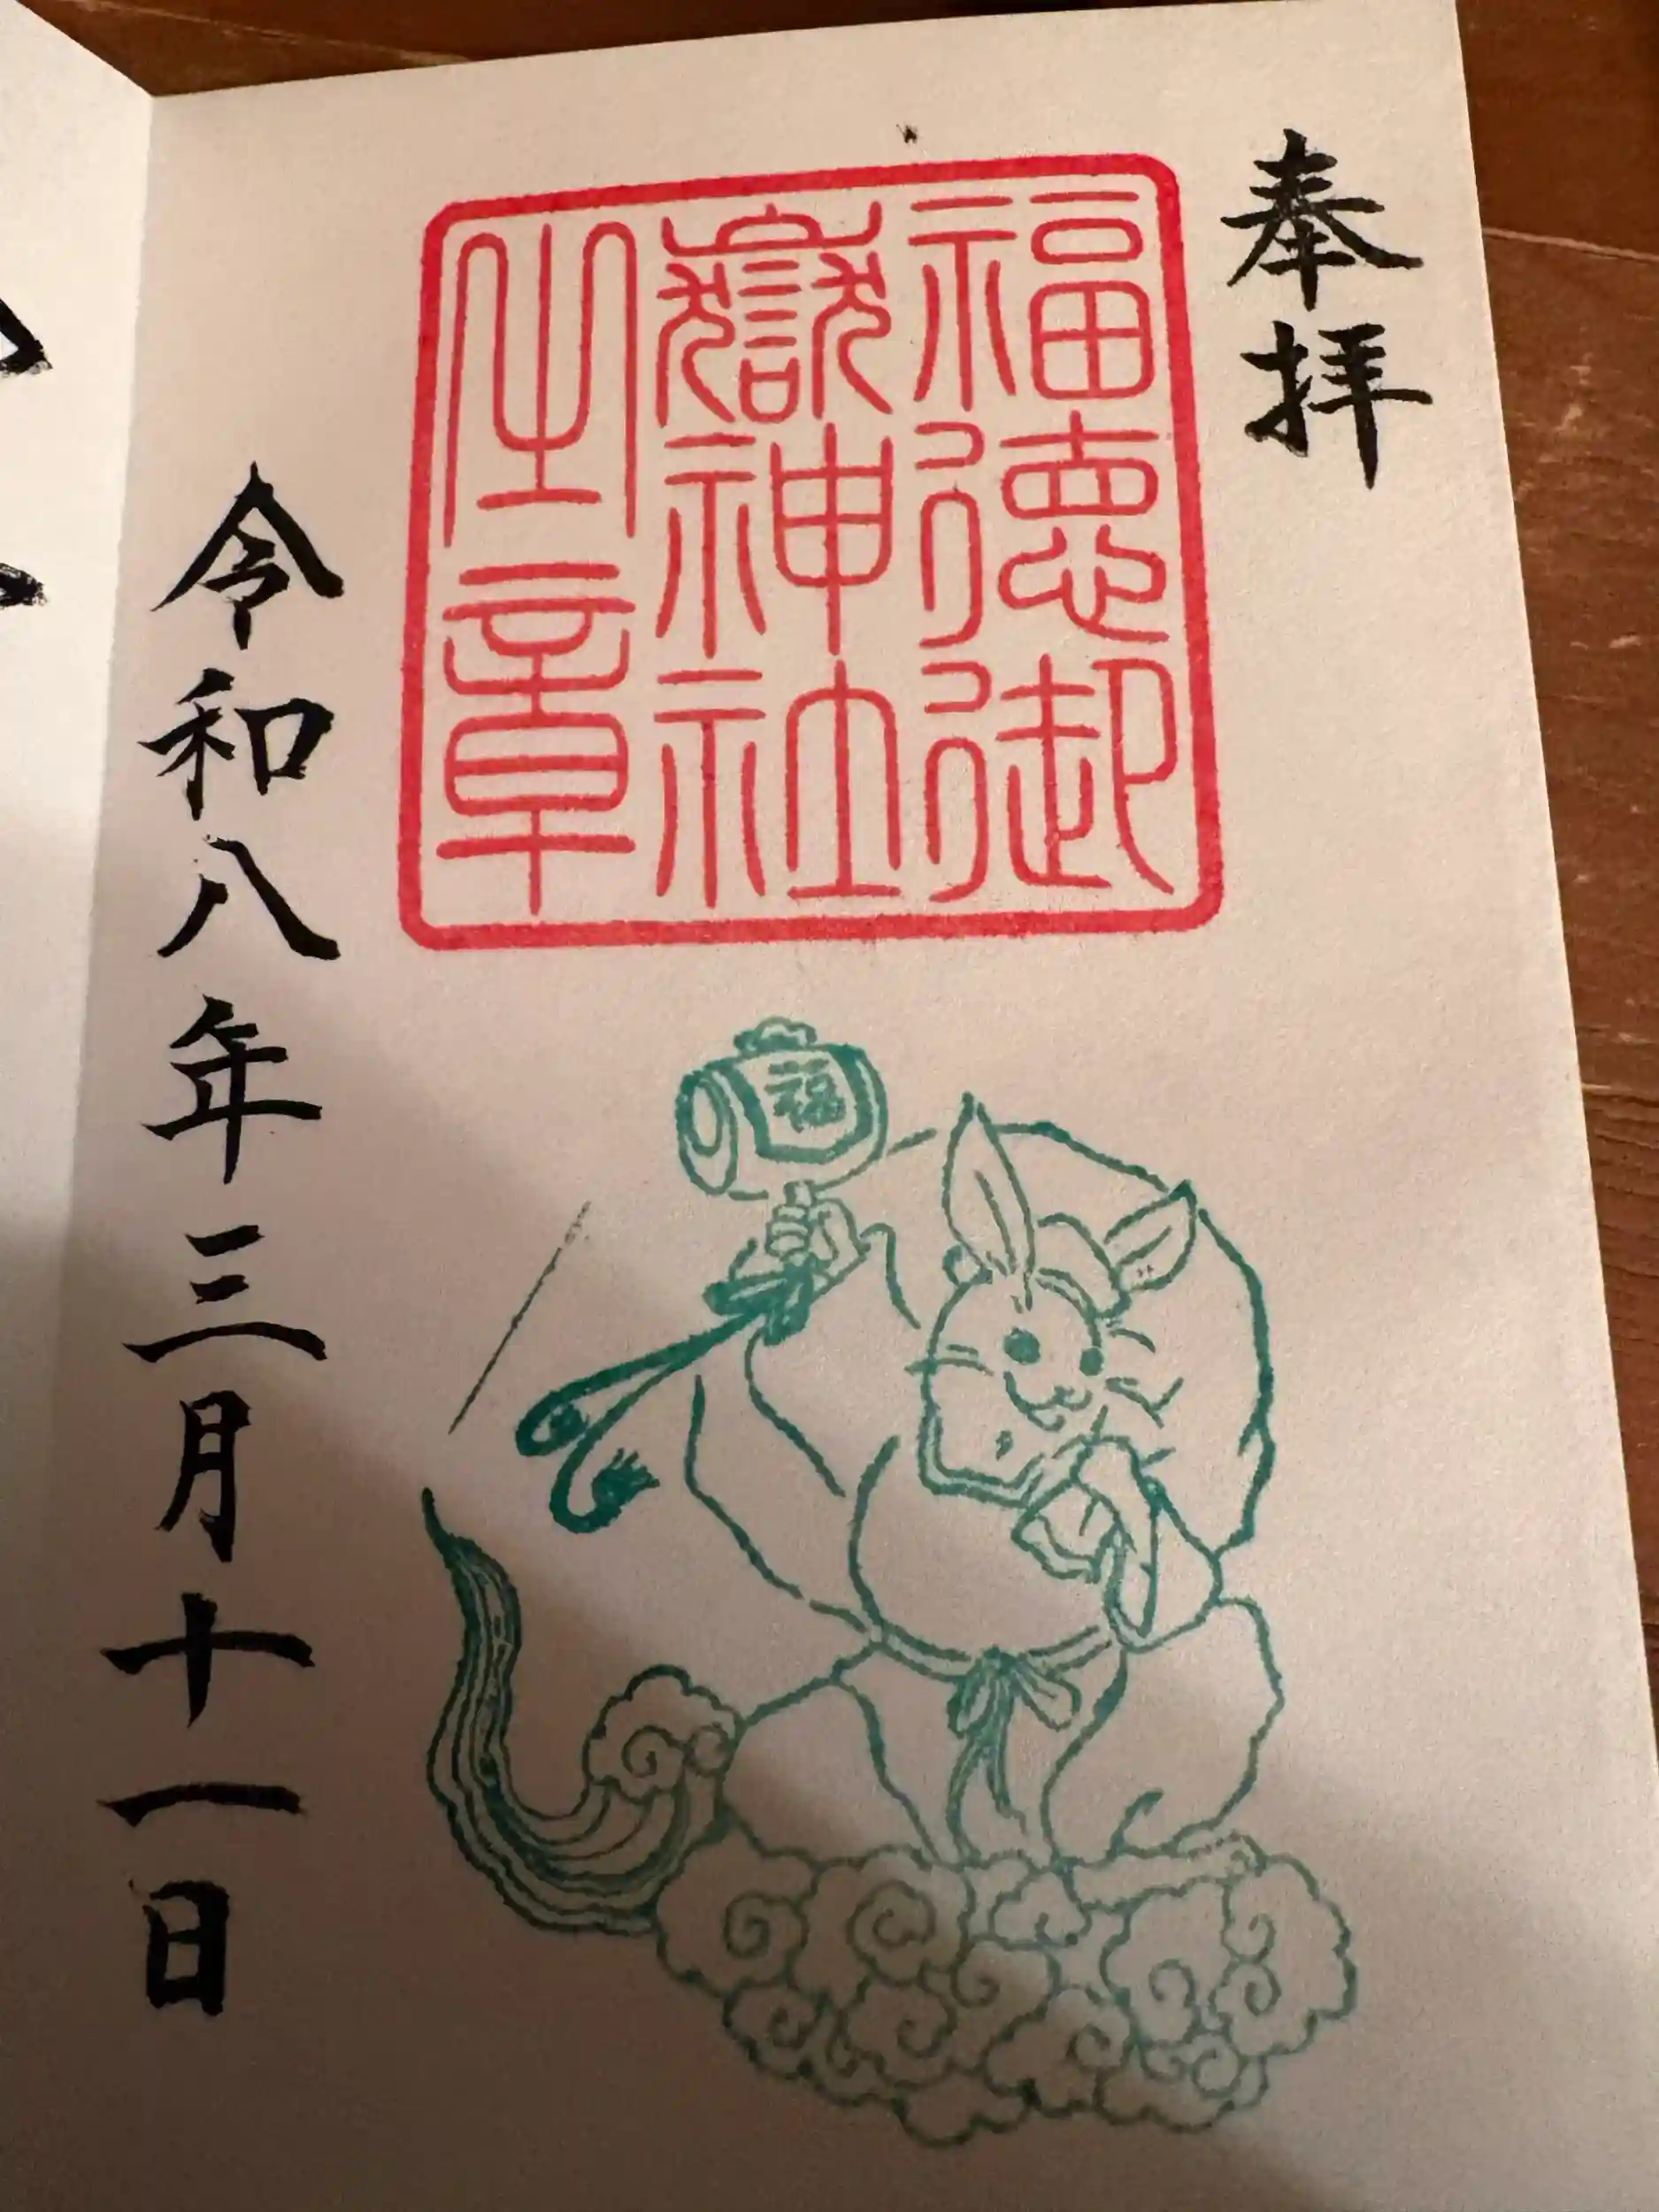 奉拝
福徳御
嶽神社
之章
福
令和八年三月十一日